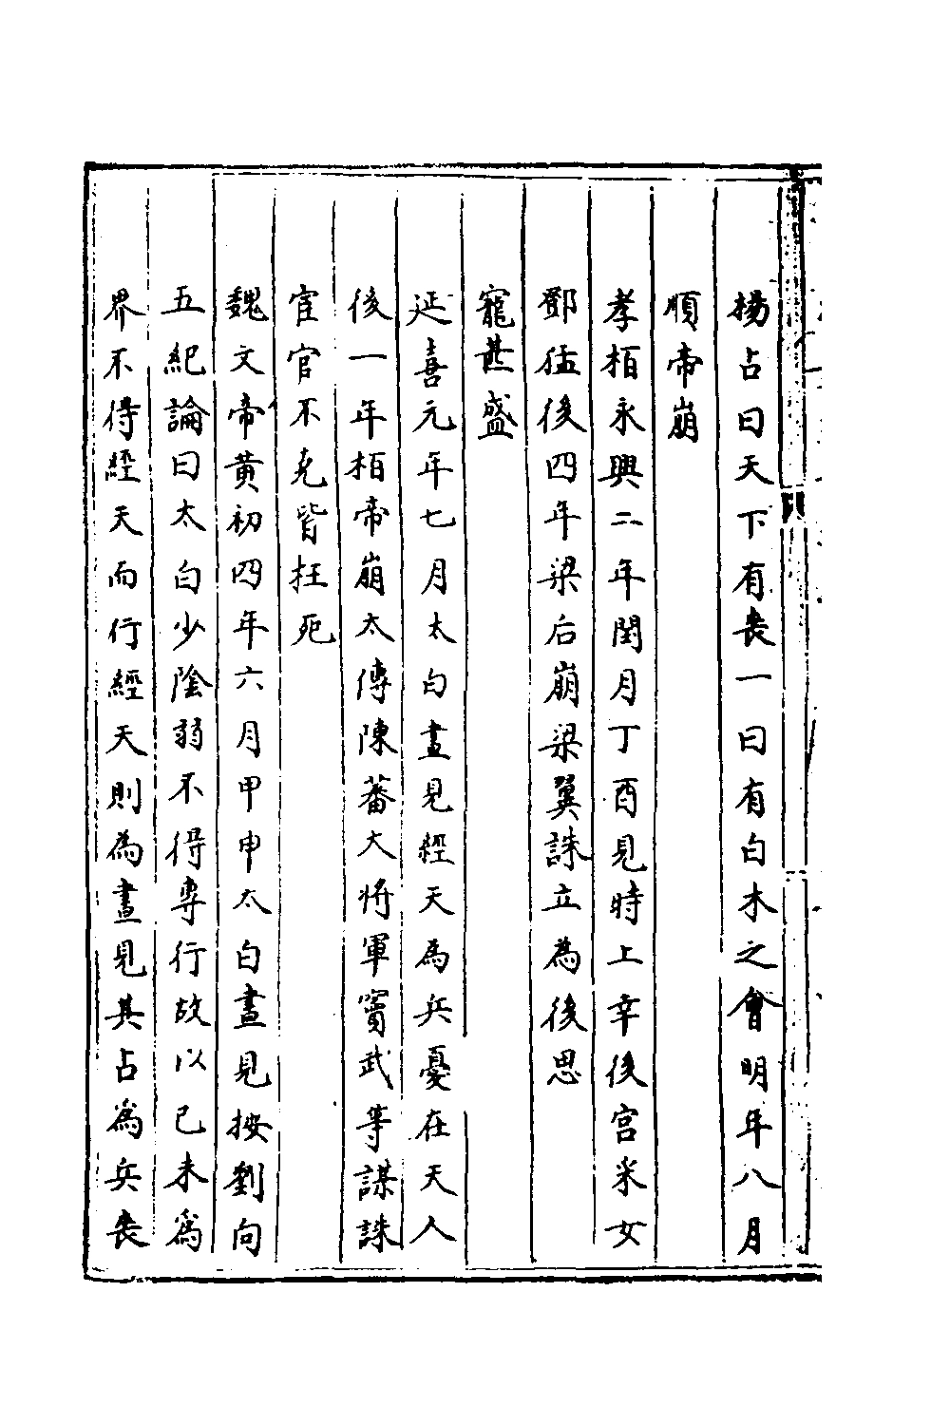 楊占曰天下有喪一曰有白木之會明年八月
順帝崩
孝栢永興二年閏月丁酉見時上幸後宮采女
鄧猛後四年梁后崩梁翼誅立為後思
寵甚盛
延喜元年七月太白晝見經天為兵憂在天人
後一年栢帝崩太傅陳蕃大將軍竇武等謀誅
宦官不克皆枉死
魏文帝黄初四年六月甲申太白晝見按劉向
五紀論曰太白少陰弱不得專行故以已未為
界不得經天而行經天則為晝見其占為兵喪